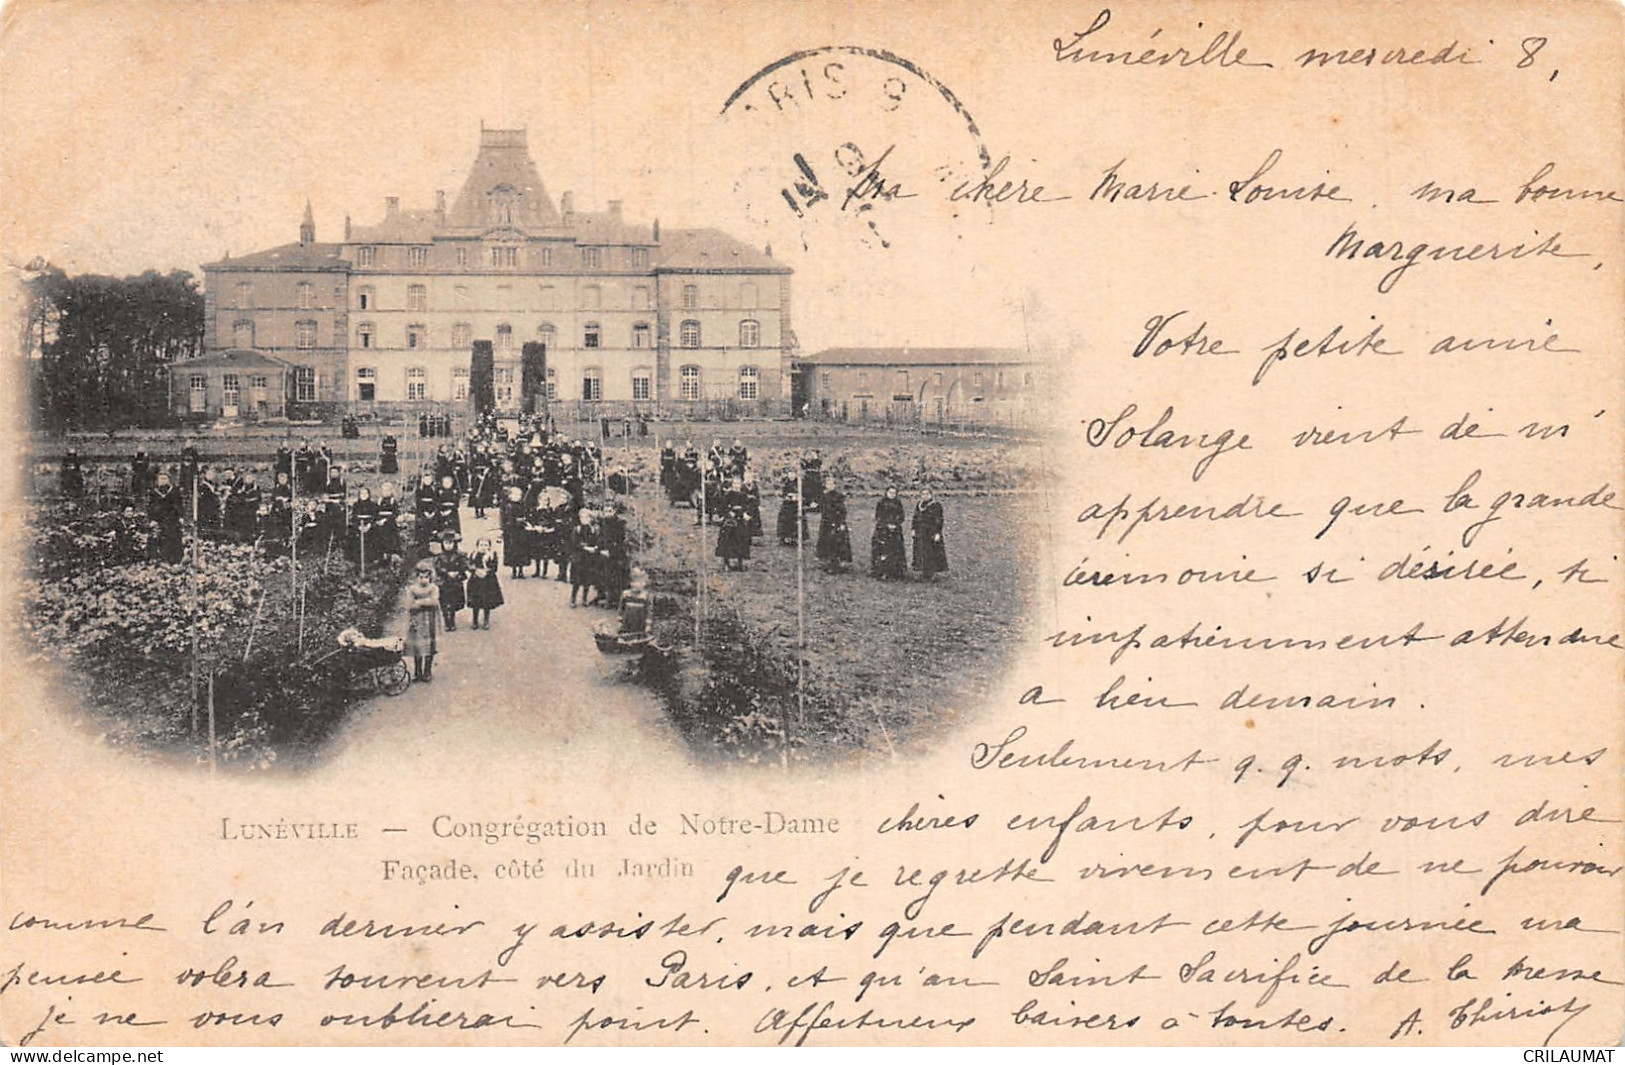 Lunéville mercredi 8,
PARIS 9
Ma chère Marie Louise, ma bonne
Marguerite,
Votre petite amie
Solange vient de m'
apprendre que la grande
cérémonie si désirée, si
impatiemment attendue
a lieu demain.
Seulement q.q. mots, mes
chères enfants, pour vous dire
que je regrette vivement de ne pouvoir
comme l'an dernier y assister, mais que pendant cette journée ma
pensée volera souvent vers Paris, et qu'au Saint Sacrifice de la Messe
je ne vous oublierai point. Affectueux baisers à toutes. A. Thiriot
LUNÉVILLE — Congrégation de Notre-Dame
Façade, côté du Jardin
CRILAUMAT
https://www.delcampe.net